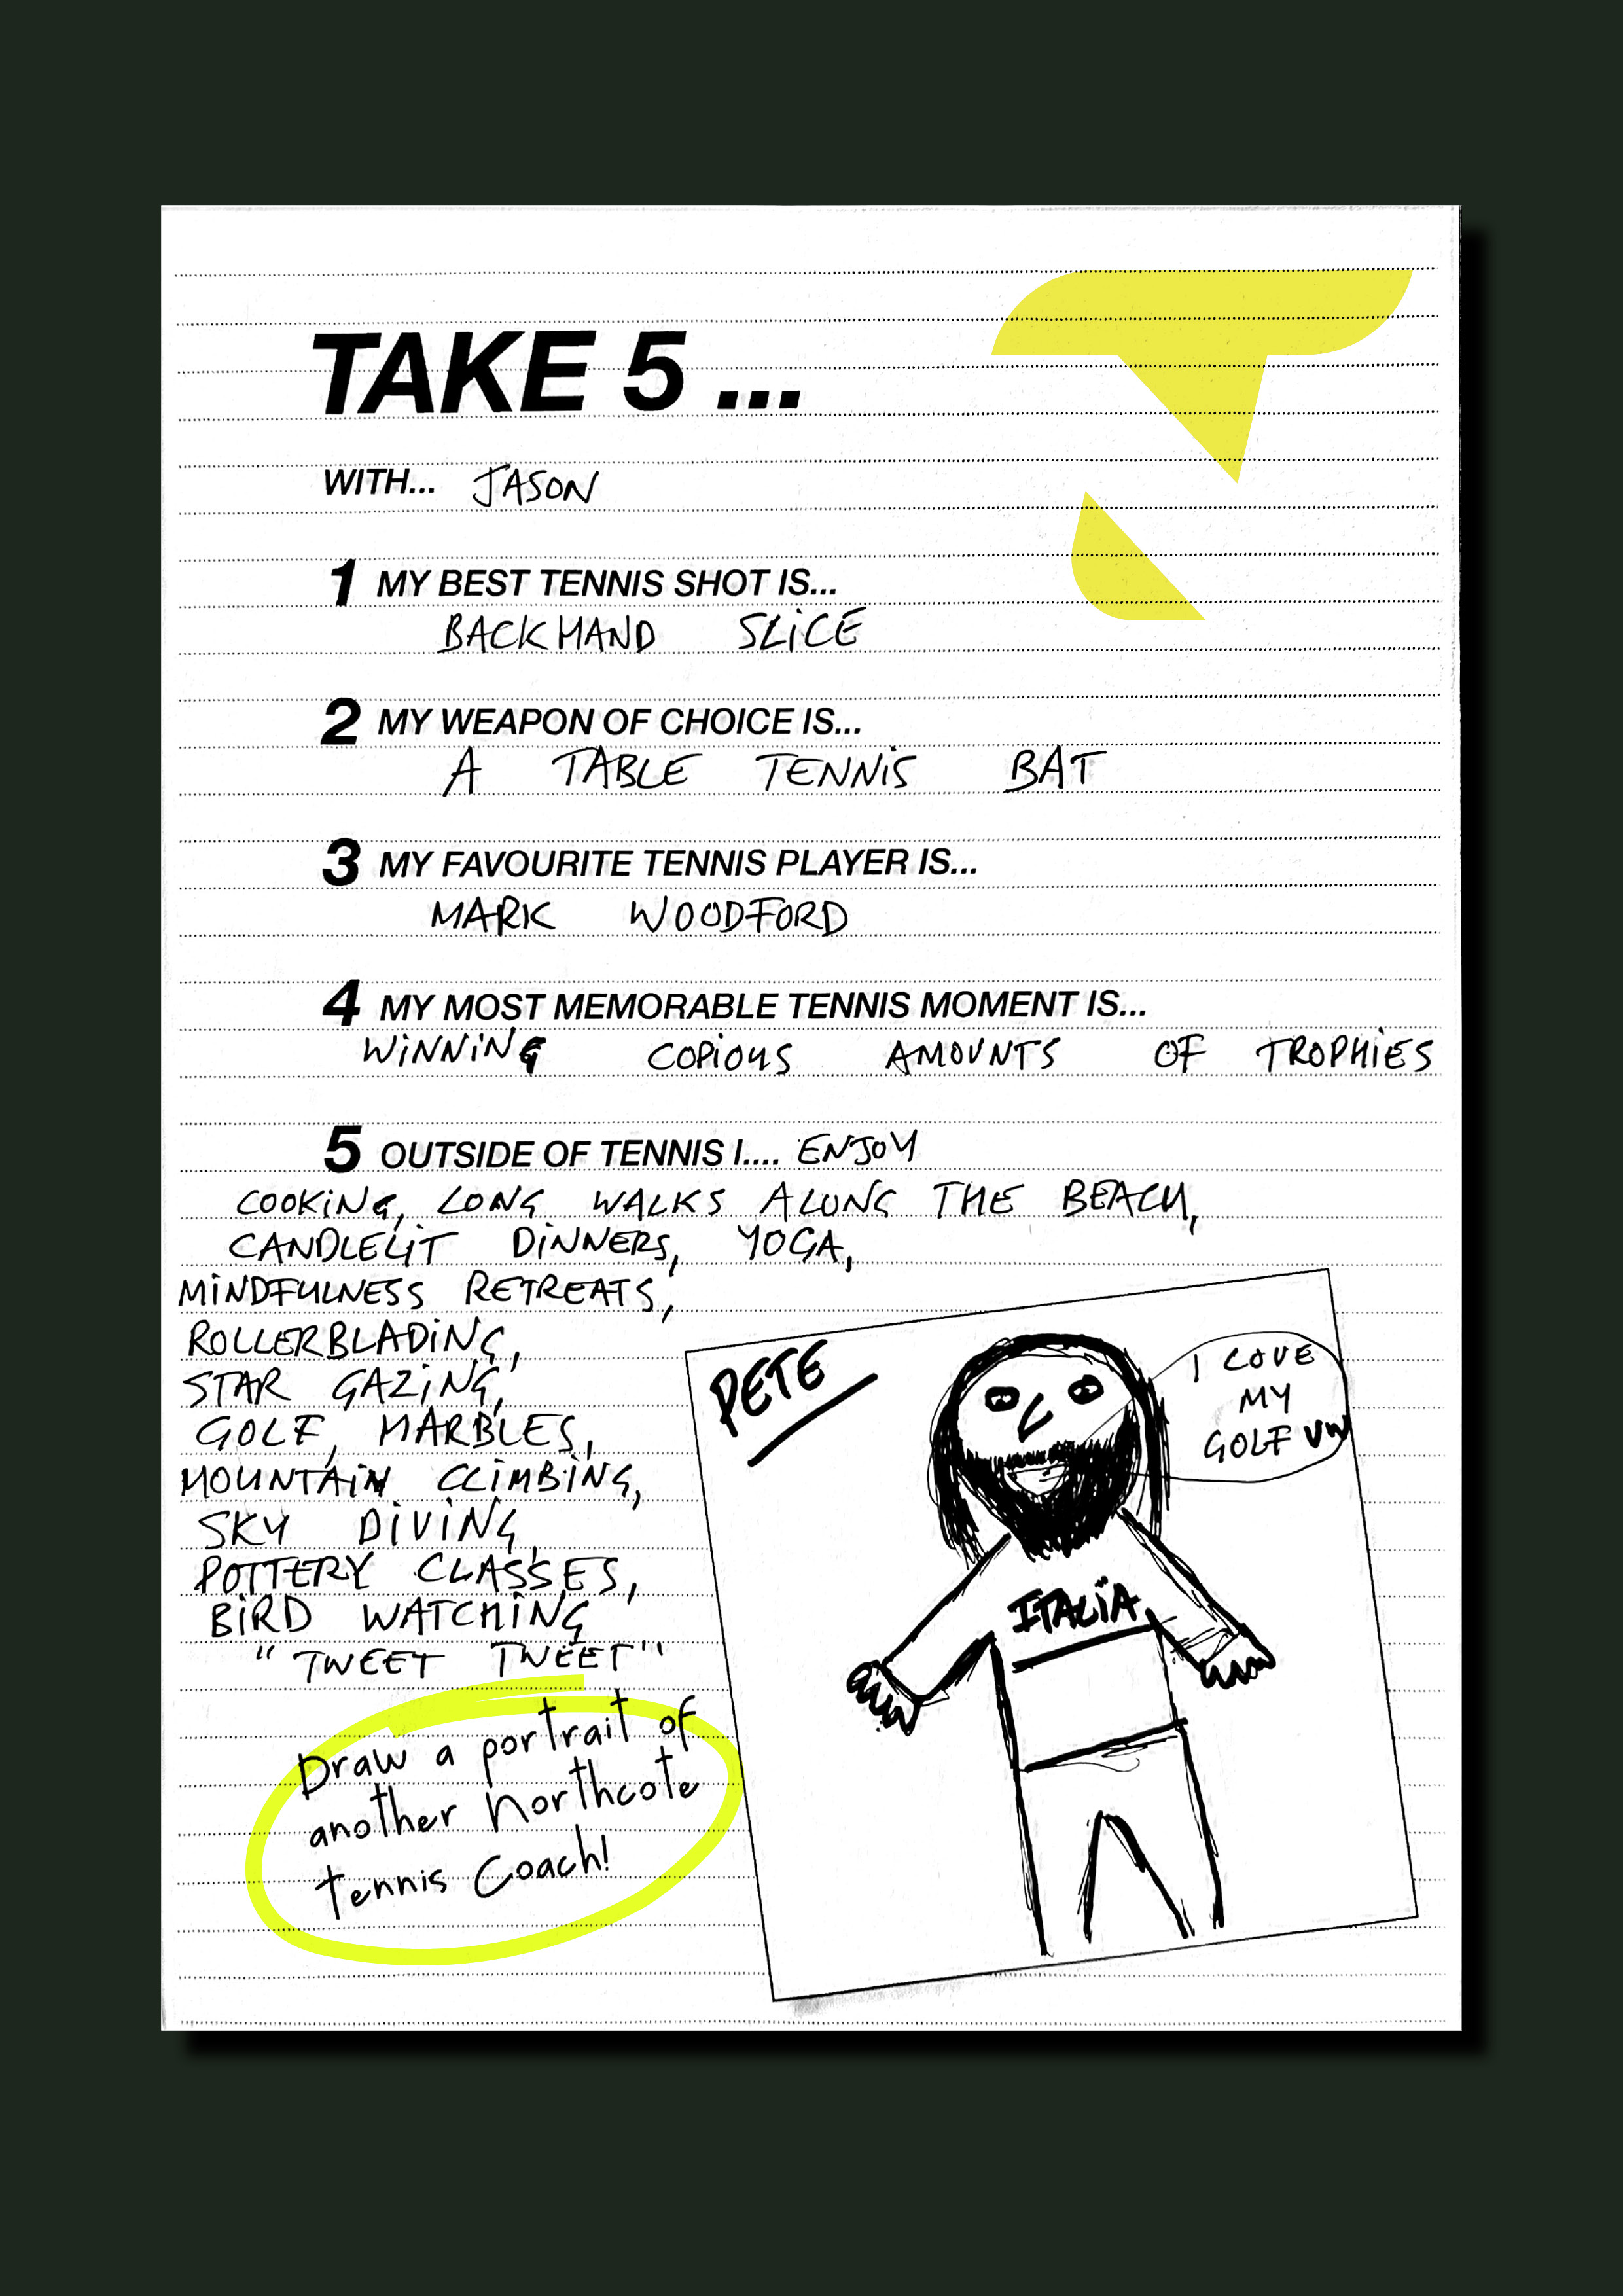 TAKE 5 ...
WITH... JASON
1 MY BEST TENNIS SHOT IS...
BACKHAND SLICE
2 MY WEAPON OF CHOICE IS...
A TABLE TENNIS BAT
3 MY FAVOURITE TENNIS PLAYER IS...
MARK WOODFORD
4 MY MOST MEMORABLE TENNIS MOMENT IS...
WINNING COPIOUS AMOUNTS OF TROPHIES
5 OUTSIDE OF TENNIS I.... ENJOY
COOKING, LONG WALKS ALONG THE BEACH,
CANDLELIT DINNERS, YOGA,
MINDFULNESS RETREATS,
ROLLERBLADING,
STAR GAZING,
GOLF, MARBLES,
MOUNTAIN CLIMBING,
SKY DIVING,
POTTERY CLASSES,
BIRD WATCHING
"TWEET TWEET"
Draw a portrait of
another Northcote
Tennis Coach!
PETE
I LOVE
MY
GOLF VW
ITALIA